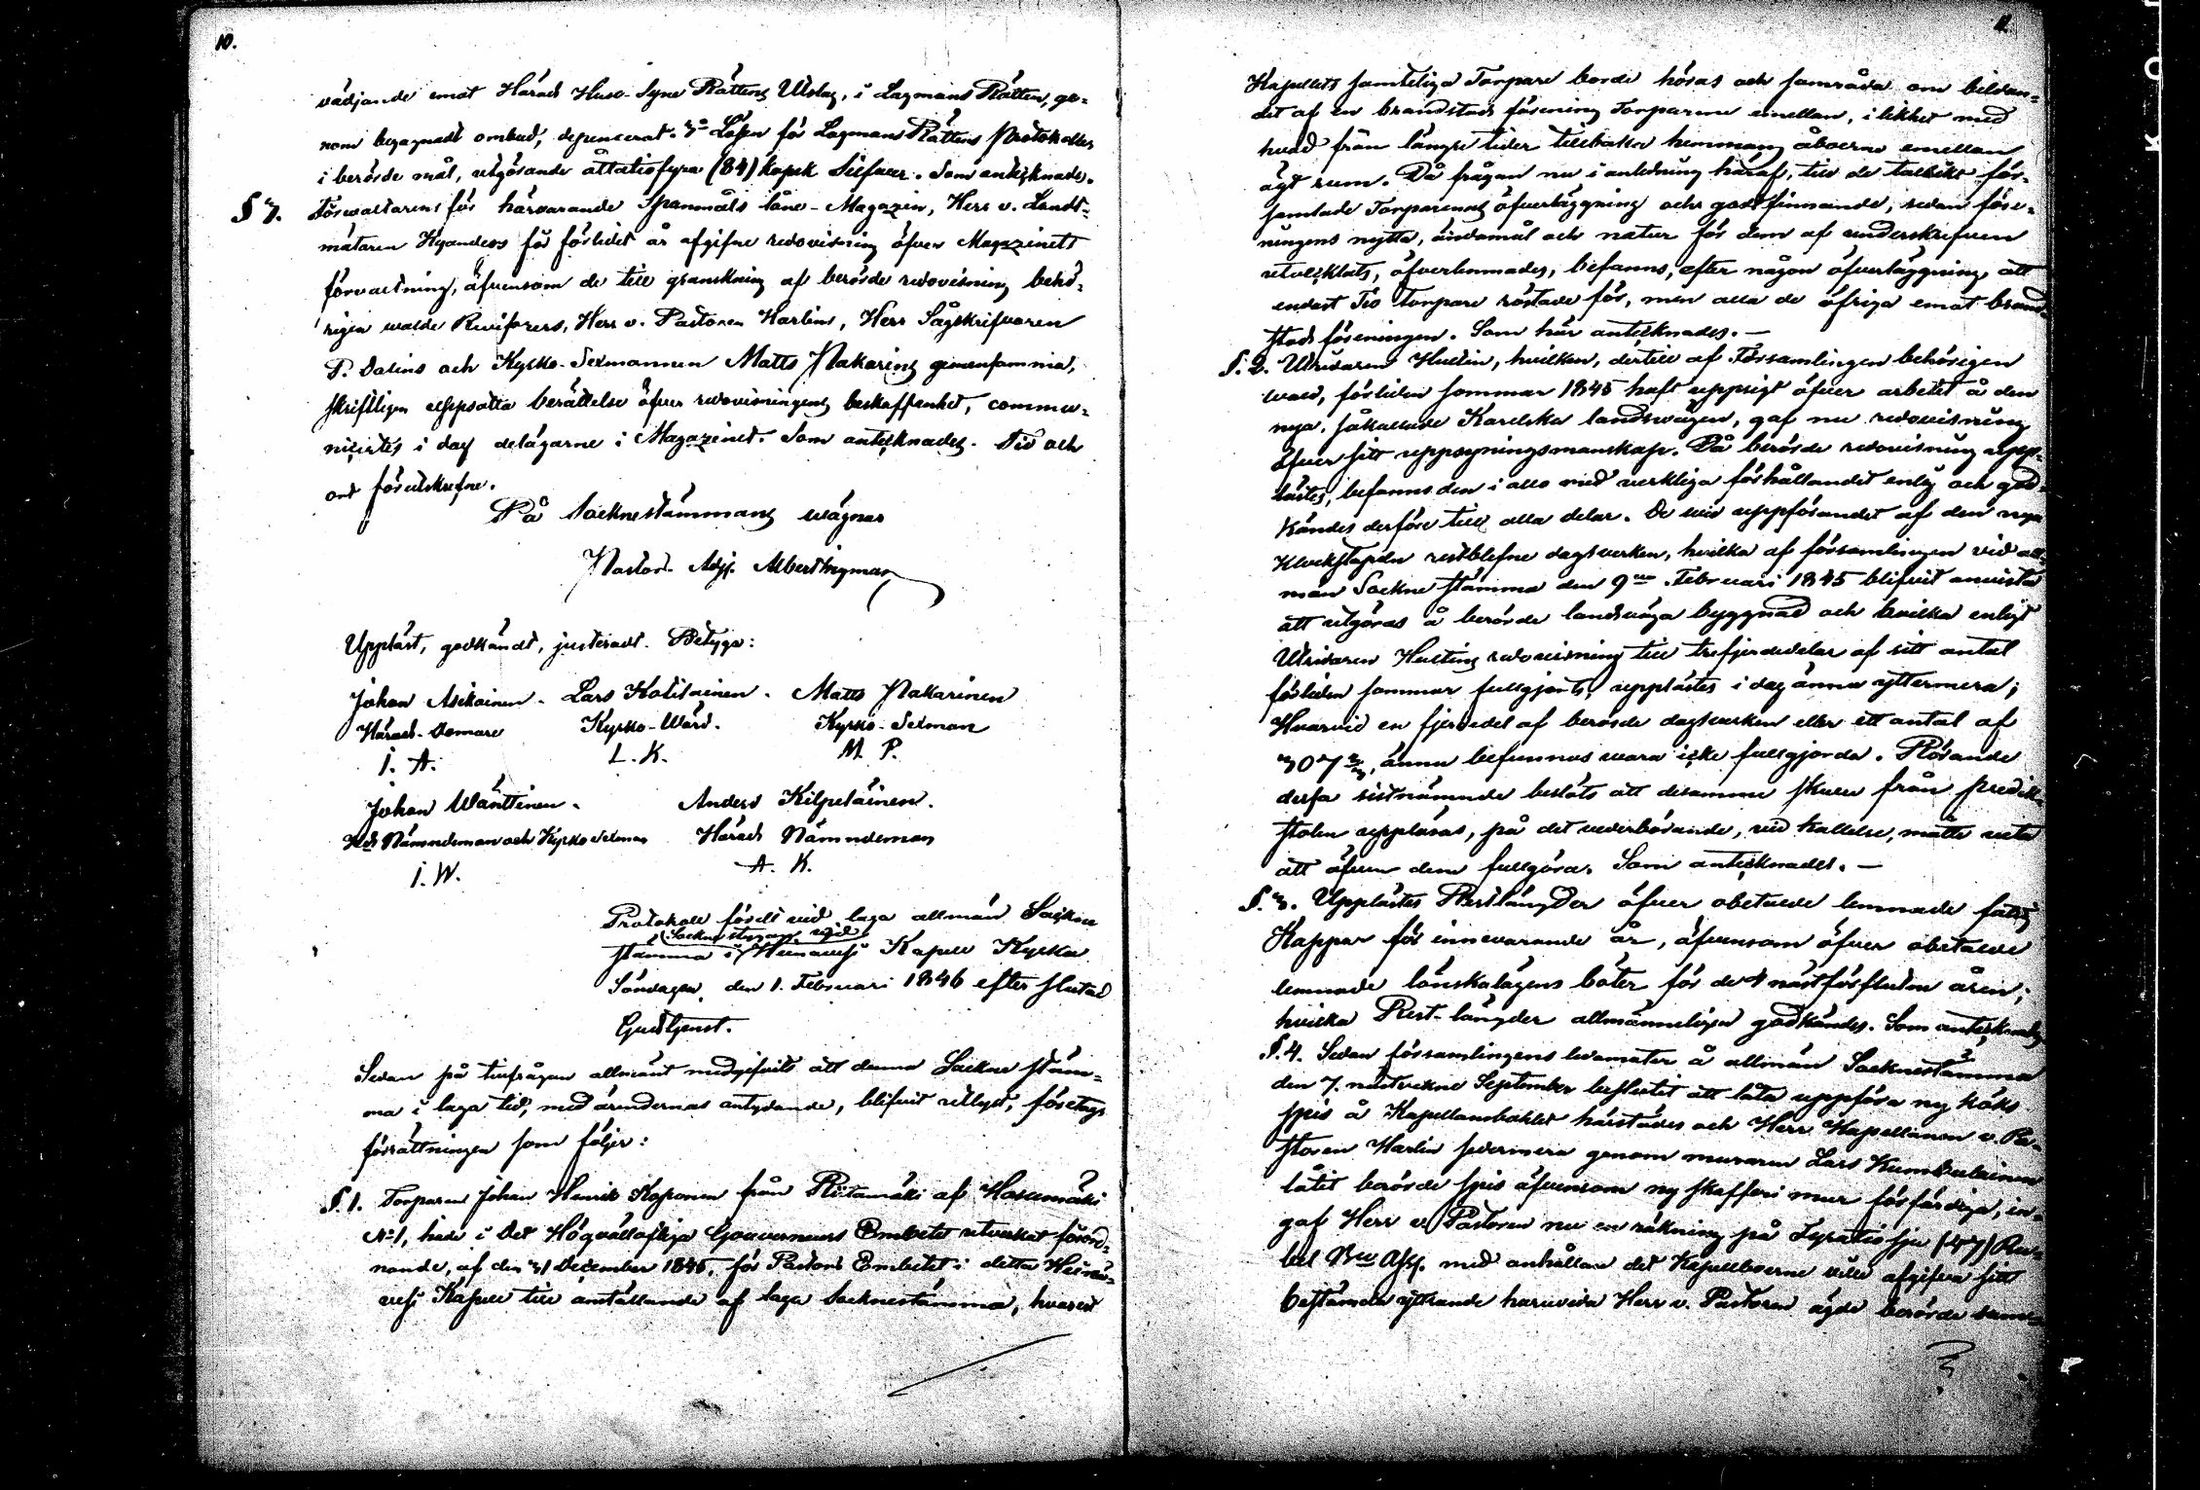 10.
vädjande emot Härads Huse-Syne Rättens Utslag, i Lagmans Rätten, ge-
nom begagnadt ombud, depencerat. 3o Lösen för Lagmans Rättens Protokoller
i berörde mål, utgörande åttatiofyra (84) kopek Silfver. Som antecknades.
§ 7. Förvaltarens för härvarande Spanmåls låne-Magazin, Herr v. Landt-
mätaren Kyanders för förlidet år afgifne redovisning öfver Magazinets
förvaltning, äfvensom de till granskning af berörde redovisning behö-
rigen walde Revisorers, Herr v. Pastoren Harlins, Herr Sågskrifvaren
P. Dalins och Kyrko-Sexmannen Matts Pakarinens gemensamma,
skriftligen uppsatta berättelse öfver redovisningens beskaffenhet, commu-
nicertes i dag delägarne i Magazinet. Som antecknades. Tid och
ort förutskrefne.
På Socknestämmans wägnar
Pastors Adj. Albert Ingman
Uppläst, godkändt, justeradt. Betyga:
Johan Asikainen. Lars Kolilainen. Matts Pakarinen
Härads-Domare Kyrko-Wärd. Kyrko-Sexman
I. A. L. K. M. P.
Johan Wänttinen. Anders Kilpeläinen.
Hds Nämndeman och Kyrko Sexman Härads Nämndeman
I. W. A. K.
Protokoll fördt vid laga allmän Sockne
(Socknestugan vid)
stämma i Heinävesi Kapell Kyrka
Söndagen, den 1. Februari 1846 efter slutad
Gudstjenst.
Sedan på tillfrågan allmänt medgifvits att denna Sockne stäm-
ma i laga tid, med ärendernas antydande, blifvit utlyst, företags
förrättningen som följer:
§. 1. Torparen Johan Henrik Koponen från Riitamäki af Hasumäki
No 1, hade i Det Högvällofliga Gouverneurs Embetet utverkat förord-
nande, af den 31 December 1845, för Pastors Embetet i detta Heinä-
vesi Kapell till anställande af laga Socknestämma, hvarvid
11.
Kapellets samtelige Torpare borde höras och samråda om bildan-
det af en brandstods förening Torparene emellan, i likhet med
hvad från längre tider tillbaka hemmans åboerne emellan
ägt rum. Då frågan nu i anledning häraf, till de talrikt för-
samlade Torparenas öfverläggning och godtfinnande, sedan före-
ningens nytta, ändamål och natur för dem af underskrifven
utvecklats, öfverlemnades, befanns, efter någon öfverläggning att
endast Tio Torpare röstade för, men alla de öfriga emot brand-
stods föreningen. Som här antecknades. —
§. 2. Utridaren Hultin, hvilken, dertill af Församlingen behörigen
wald, förliden sommar 1845 haft uppsigt öfver arbetet å den
nya, såkallade Karelska landsvägen, gaf nu redovisning
öfver sitt uppsyningsmanskap. Då berörde redovisning upp-
lästes, befanns den i allo med verkliga förhållandet enlig och god-
kändes derföre till alla delar. De vid uppförandet af den nya
Klockstapeln restblefne dagsverken, hvilka af församlingen vid all-
män Sockne stämma den 9de Februari 1845 blifvit anvista
att utgöras å berörde landsväga byggnad och hvilka enligt
Utridaren Hultins redovisning till trefjerdedelar af sitt antal
förliden sommar fullgjorts, upplästes i dag ännu yttermera;
Hvarvid en fjerdedel af berörde dagsverken eller ett antal af
307 2/3, ännu befunnos wara icke fullgjorda. Rörande
dessa sistnämnde beslöts att desamme skulle från predik-
stolen uppläsas, på det vederbörande, vid kallelse, måtte veta
att äfven dem fullgöra. Som antecknades. —
§. 3. Upplästes Restlängder öfver obetalde lemnade fattig
Kappar för innevarande år, äfvensom öfver obetalde
lemnade lönskalägens böter för de 4 nästförflutna åren;
hvilka Rest-längder allmänneligen godkändes. Som antecknades
§. 4. Sedan församlingens ledamöter å allmän Socknestämma
den 7. nästvekne September beslutet att låta uppföra ny köks
spis å Kapellansbohlet härstädes och Herr Kapellanen v. Pa-
storen Harlin sedermera genom muraren Lars Kumbulainen
låtit berörde spis äfvensom ny skafferi mur förfärdiga, in-
gaf Herr v. Pastoren nu en räkning på Fyratiosju (47) Ru-
bel Bco Ass. med anhållan det Kapellboerne ville afgifva sitt
bestämda yttrande huruvida Herr v. Pastoren ägde berörde sum-